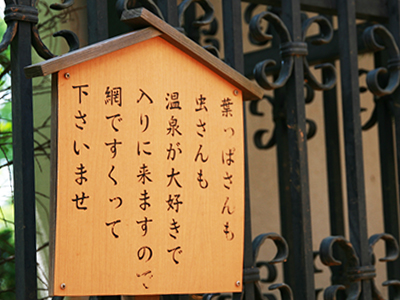 葉っぱさんも
虫さんも
温泉が大好きで
入りに来ますので
網ですくって
下さいませ